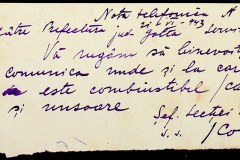 Notă telefonică A
către Prefectura jud. Galta Servi
21 VI 943
Vă rugăm să binevoi
comunica unde și la car
este combustibil /ca
și unsoare
Șef. Secției
s.s. /Co